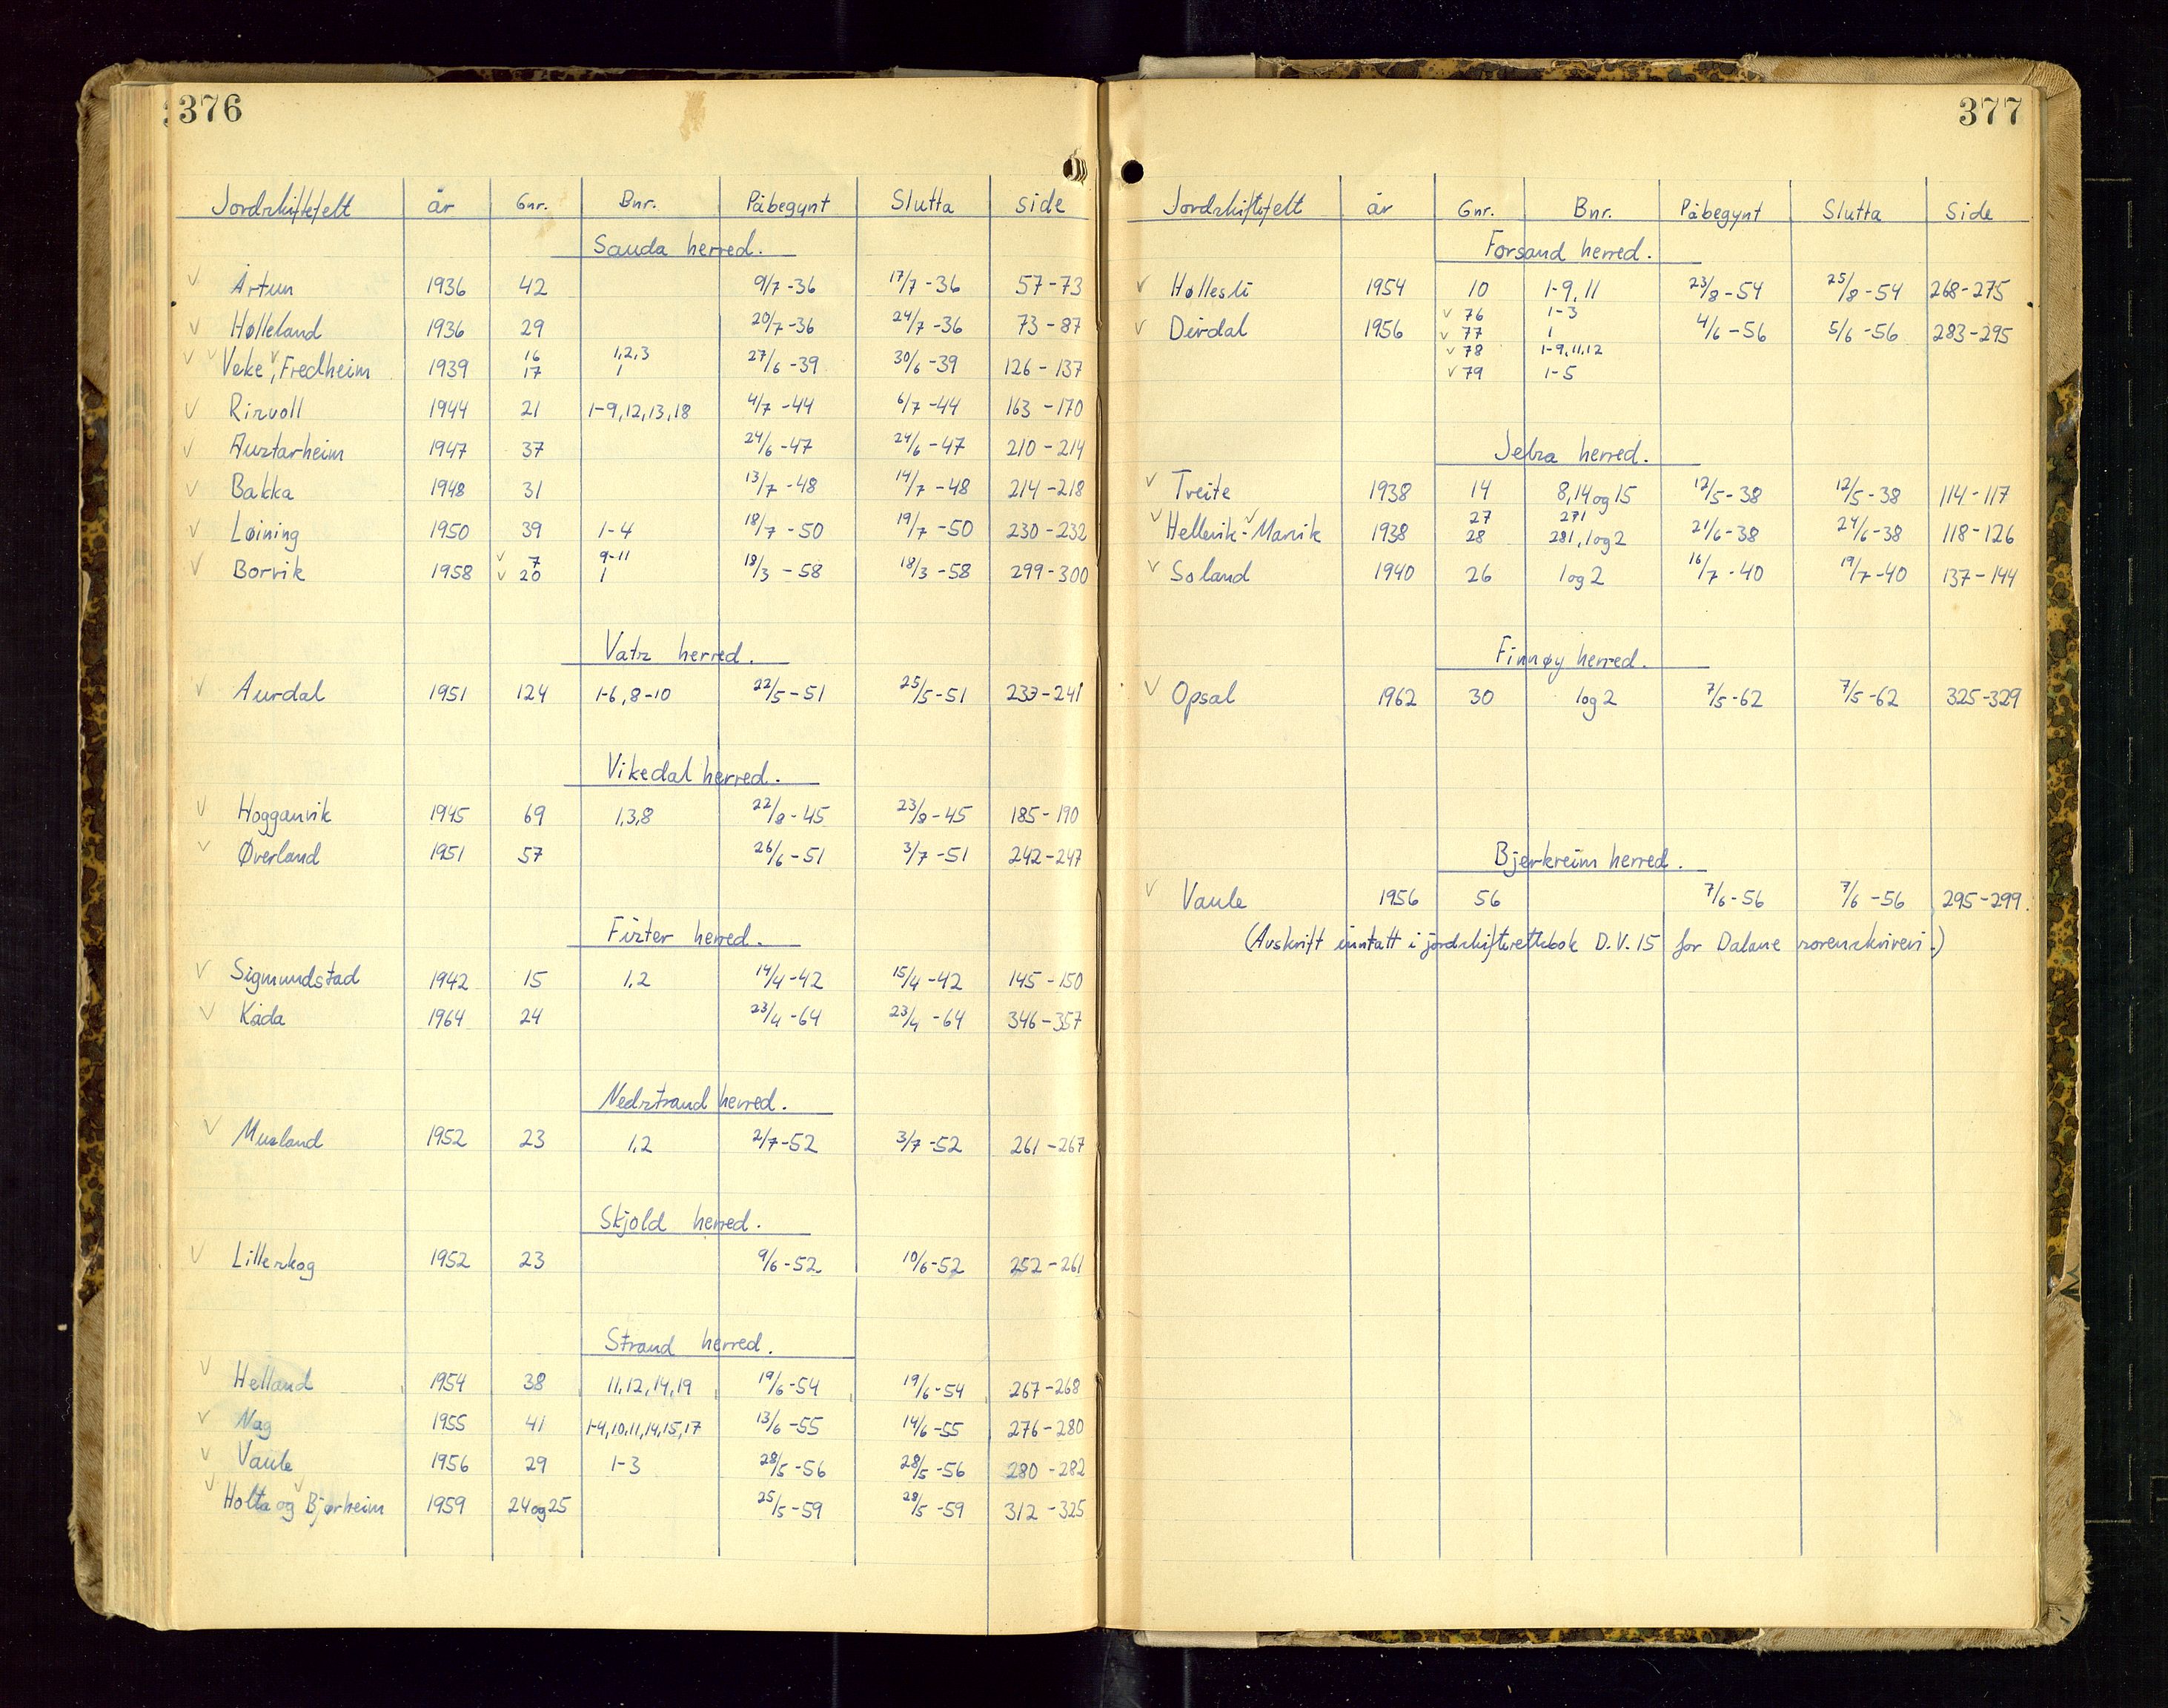 376
Jordskiftefelt år Gnr. Bnr. Påbegynt Slutta side
Sauda herred.
✓ Årtun 1936 42 9/7-36 17/7-36 57-73
✓ Hølleland 1936 29 20/7-36 24/7-36 73-87
✓ ✓ ✓ 16 1,2,3
Veke, Fredheim 1939 17 1 27/6-39 30/6-39 126-137
✓ Risvoll 1944 21 1-9,12,13,18 4/7-44 6/7-44 163-170
✓ Austarheim 1947 37 24/6-47 24/6-47 210-214
✓ Bakka 1948 31 13/7-48 14/7-48 214-218
✓ Løining 1950 39 1-4 18/7-50 19/7-50 230-232
✓ 7 9-11
✓ Borvik 1958 ✓ 20 1 18/3-58 18/3-58 299-300
Vats herred.
✓ Aurdal 1951 124 1-6,8-10 22/5-51 25/5-51 233-241
Vikedal herred.
✓ Hogganvik 1945 69 1,3,8 22/8-45 23/8-45 185-190
✓ Øverland 1951 57 26/6-51 3/7-51 242-247
Fister herred.
✓ Sigmundstad 1942 15 1,2 14/4-42 15/4-42 145-150
✓ Kåda 1964 24 23/4-64 23/4-64 346-357
Nedstrand herred.
✓ Musland 1952 23 1,2 2/7-52 3/7-52 261-267
Skjold herred.
✓ Lilleskog 1952 23 9/6-52 10/6-52 252-261
Strand herred.
✓ Helland 1954 38 11,12,14,19 19/6-54 19/6-54 267-268
✓ Nag 1955 41 1-4,10,11,14,15,17 13/6-55 14/6-55 276-280
✓ Vaule 1956 29 1-3 28/5-56 28/5-56 280-282
✓ ✓ Holta og Bjørheim 1959 24og25 25/5-59 28/5-59 312-325
377
Jordskiftefelt år Gnr. Bnr. Påbegynt Slutta Side
Forsand herred.
✓ Høllesli 1954 10 1-9,11 23/8-54 25/8-54 268-275
✓ 76 1-3
✓ Dirdal 1956 ✓ 77 1 4/6-56 5/6-56 283-295
✓ 78 1-9,11,12
✓ 79 1-5
Jelsa herred.
✓ Tveite 1938 14 8,14og15 12/5-38 12/5-38 114-117
✓ ✓ 27 271
Hellevik-Marvik 1938 28 281,1og2 21/6-38 24/6-38 118-126
✓ Soland 1940 26 1og2 16/7-40 19/7-40 137-144
Finnøy herred.
✓ Opsal 1962 30 1og2 7/5-62 7/5-62 325-329
Bjerkreim herred.
✓ Vaule 1956 56 7/6-56 7/6-56 295-299.
(Avskrift inntatt i jordskifterettsbok D.V.15 for Dalane sorenskriveri.)